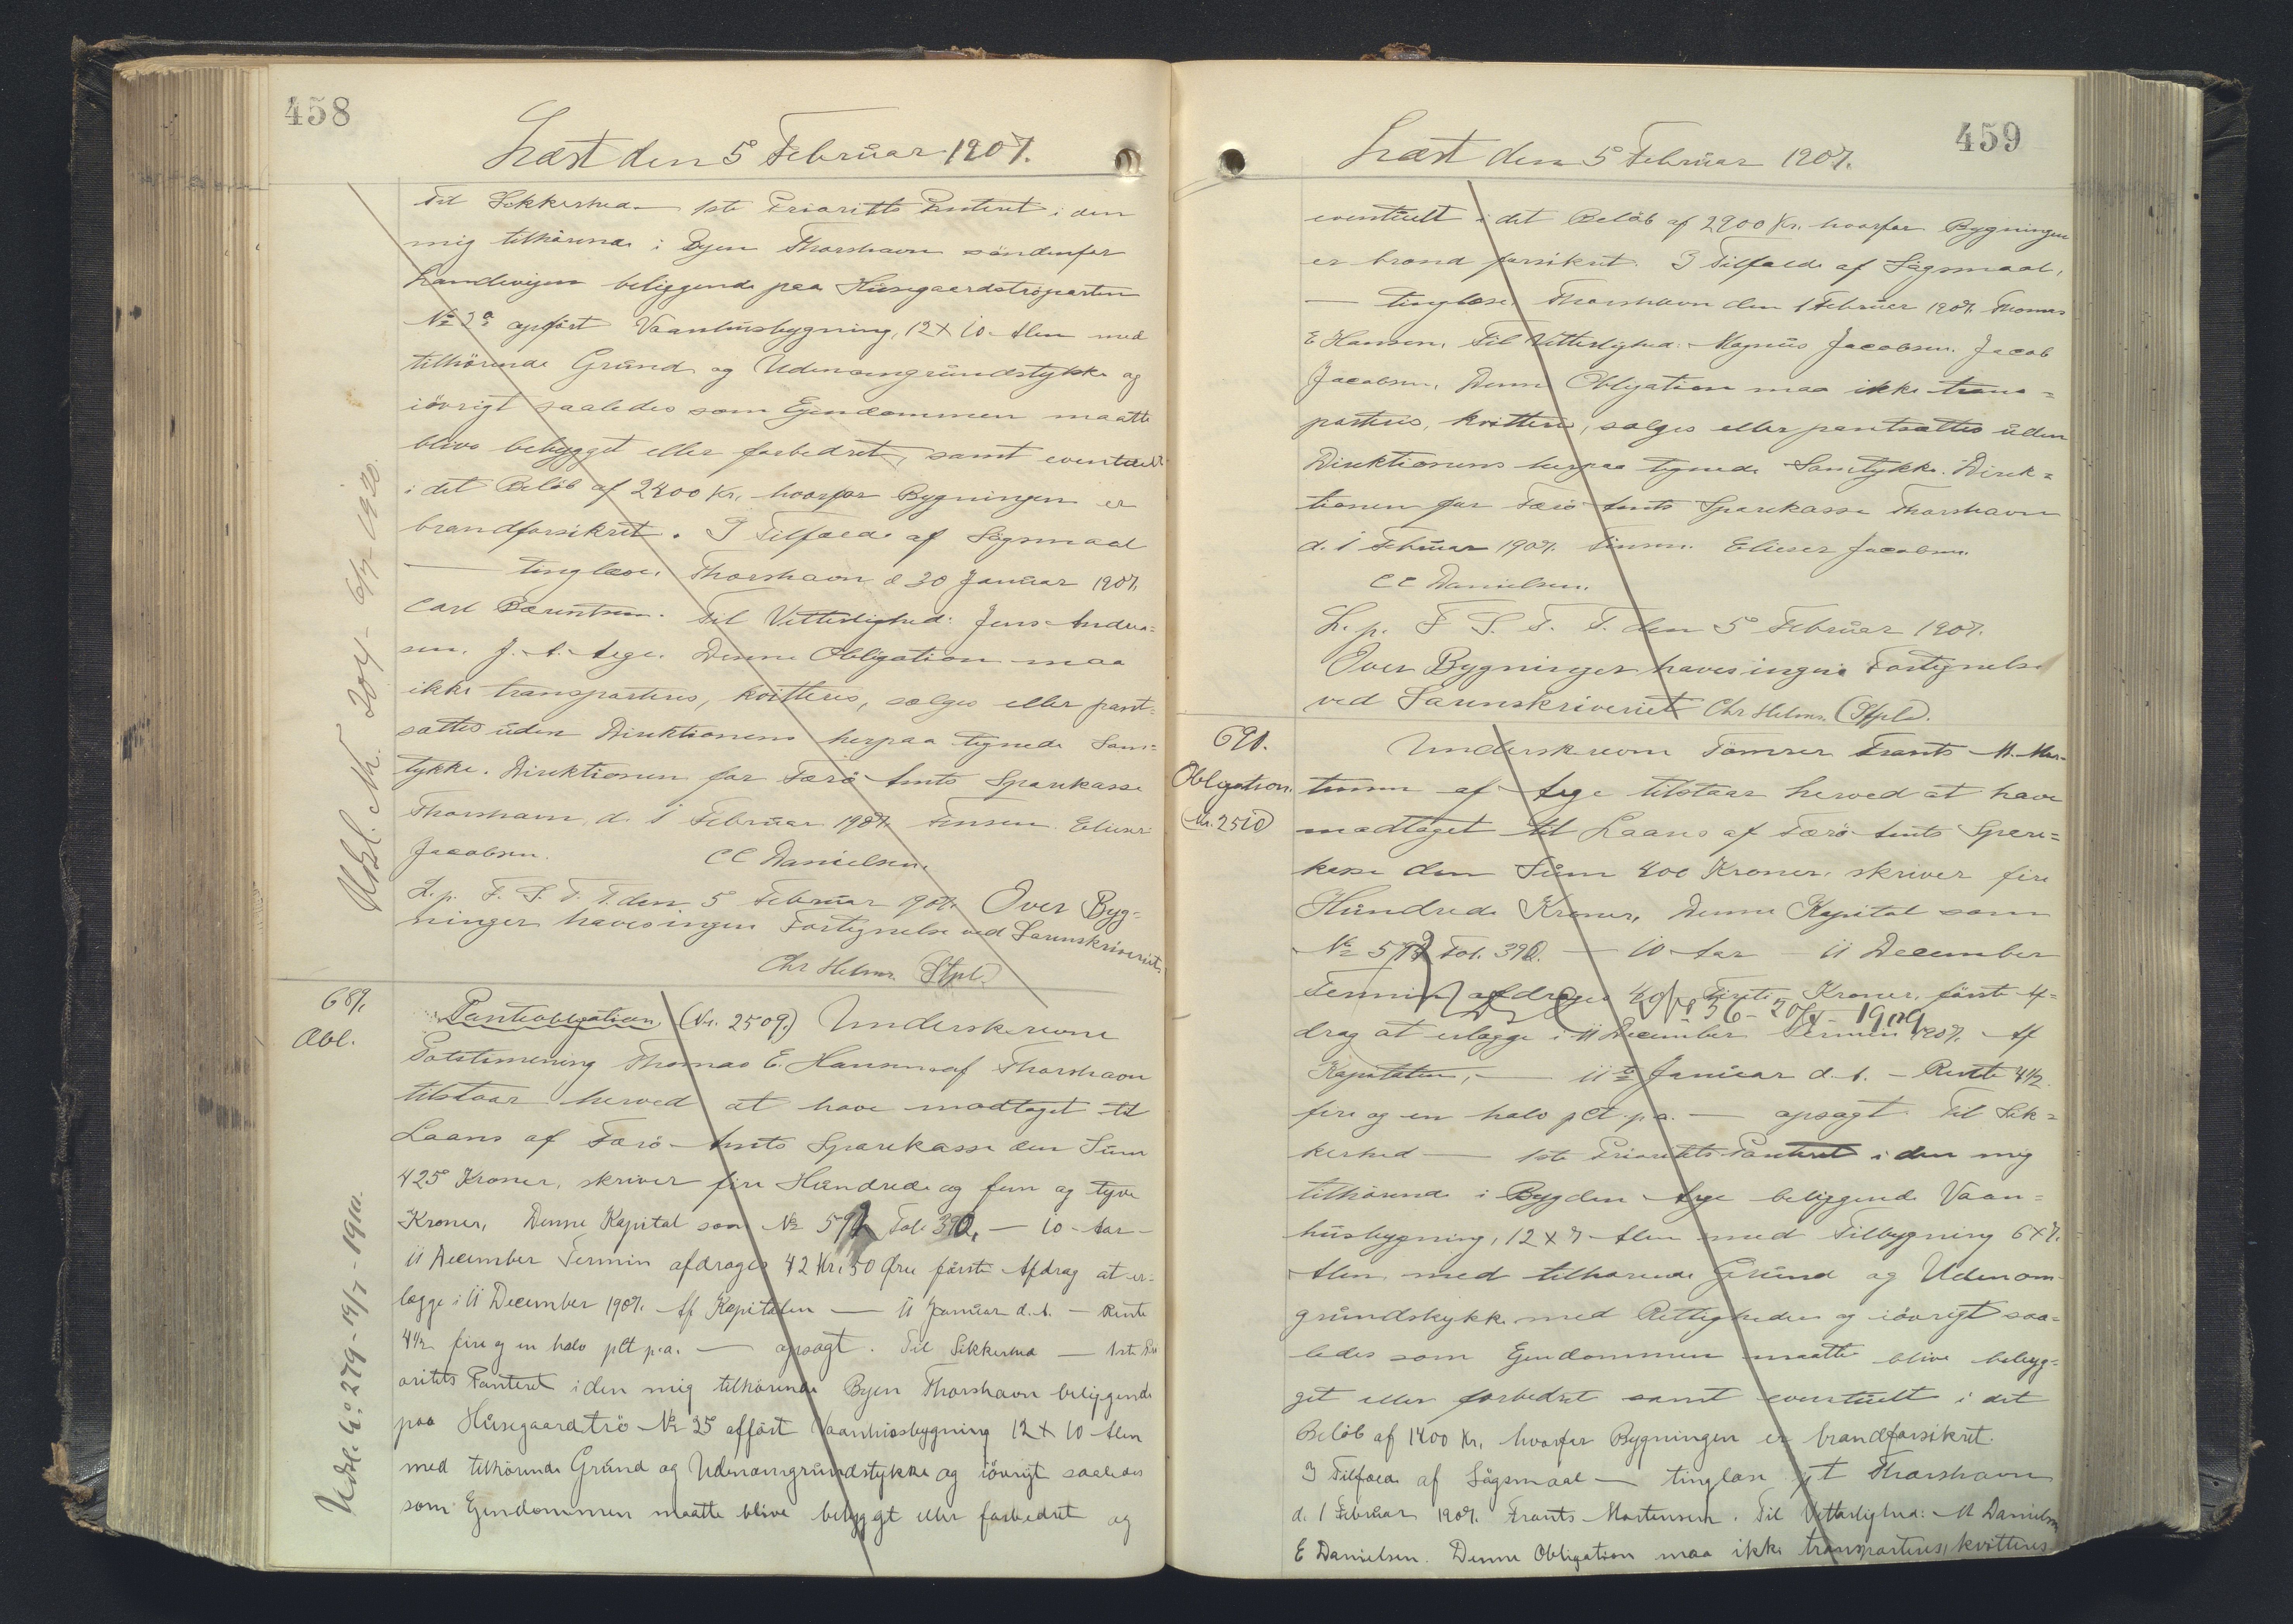 458
Læst den 5 Februar 1907.
Til Sikkerhed — 1ste Prioritets Panteret i den
mig tilhörende i Byen Thorshavn söndenfor
Landevejen beliggende paa Húsegaardströparten
№ 2a opfört Vaanhúsbygning, 12 x 10 Alen med
tilhörende Grúnd og Udenomgrúndstykke og
iövrigt saaledes som Ejendommen maatte
blive bebygget eller forbedret, samt eventuelt
i det Belöb af 2400 Kr. hvorfor Bygningen er
brandforsikret. I Tilfælde af Sögsmaal
— tinglæse. Thorshavn d 30 Janúar 1907.
Carl Bærentsen. Til Vitterlighed: Jens Andrea=
sen. J. A. Arge. Denne Obligation maa
ikke transporteres, kvitteres, sælges eller pant=
sættes úden Direktionens herpaa tegnede Sam=
tykke. Direktionen for Færö Amts Sparekasse
Thorshavn, d. 1 Febrúar 1907. Finsen. Elieser
Jacobsen. CC Danielsen.
L. p. F. S. T. T. den 5 Febrúar 1907. Over Byg=
ninger haves ingen Fortegnelse ved Sørenskriveriet.
Chr Helms. (Stpl.)
Udsl. № 204 - 6/7 - 1920.
689.
Obl.
Panteobligation (Nr. 2509.) Underskrevne
Thomas E. Hansen af Thorshavn
tilstaar herved at have modtaget til
Laans af Færö Amts Sparekasse den Súm
425 Kroner, skriver fire Húndrede og fem og tyve
Kroner, Denne Kapital som № Fol. 390. — 10 Aar —
11 December Termin afdrages 42 Kr. 50 Øre förste Afdrag at er=
lægge i 11 December 1907. Af Kapitalen — 11 Janúar d. A. — Rente
4½ fire og en halv pCt p.a. — opsagt. Til Sikkerhed — 1ste Pri
oritets Panteret i den mig tilhörende Byen Thorshavn beliggende
paa Húsegaardströ № 25 opfört Vaanhúsbygning 12 x 10 Alen
med tilhörende Grúnd og Udenomgrúndstykke og iövrigt saaledes
som Ejendommen maatte blive bebygget eller forbedret og
Udsl. № 279 - 19/7 - 1910.
459
Læst den 5 Februar 1907.
eventúelt i det Belöb af 2900 Kr. hvorfor Bygningen
er brandforsikret. I Tilfælde af Sögsmaal,
— tinglæse. Thorshavn den 1 Febrúar 1907. Thomas
E Hansen. Til Vitterlighed: Magnús Jacobsen. Jacob
Jacobsen. Denne Obligation maa ikke trans=
porteres, kvitteres, sælges eller pantsættes úden
Direktionens herpaa tegnede Samtykke. Direk=
tionen for Færö Amts Sparekasse Thorshavn
d. 1 Febrúar 1907. Finsen. Elieser Jacobsen.
CC Danielsen.
L. p. F. S. T. T. den 5 Februar 1907.
Over Bygninger haves ingen Fortegnelse
ved Sørenskriveriet Chr Helms. (Stpl.)
690.
Obligation.
(Nr. 2510)
Underskrevne Tömrer Frants M. Mor=
tensen af Arge tilstaar herved at have
modtaget til Laans af Færö Amts Spare=
kasse den Súm 400 Kroner, skriver fire
Húndrede Kroner, Denne Kapital som
№ Fol. 390. — 10 Aar — 11 December
Termin afdrages 40 Firti Kroner, förste Af=
Udsl. № 56 - 1909
drag at erlægge i 11 December Termin 1907. Af
Kapitalen, — 11te Janúar d. A. — Rente 4½
fire og en halv pCt p.a. — opsagt. Til Sik=
kerhed — 1ste Prioritets Panteret i den mig
tilhörende i Bygden Arge beliggende Vaan=
húsbygning, 12 x 7 Alen med Tilbygning 6 x 7
Alen, med tilhörende Grúnd og Udenom
grúndstykke med Rettigheder og iövrigt saa=
ledes som Ejendommen maatte blive bebyg=
get eller forbedret samt eventúelt i det
Belöb af 1400 Kr. hvorfor Bygningen er brandforsikret.
I Tilfælde af Sögsmaal — tinglæse Thorshavn
d. 1 Febrúar 1907. Frants Mortensen. Til Vitterlighed: M Danielsen
E Danielsen. Denne Obligation maa ikke transporteres, kvitteres